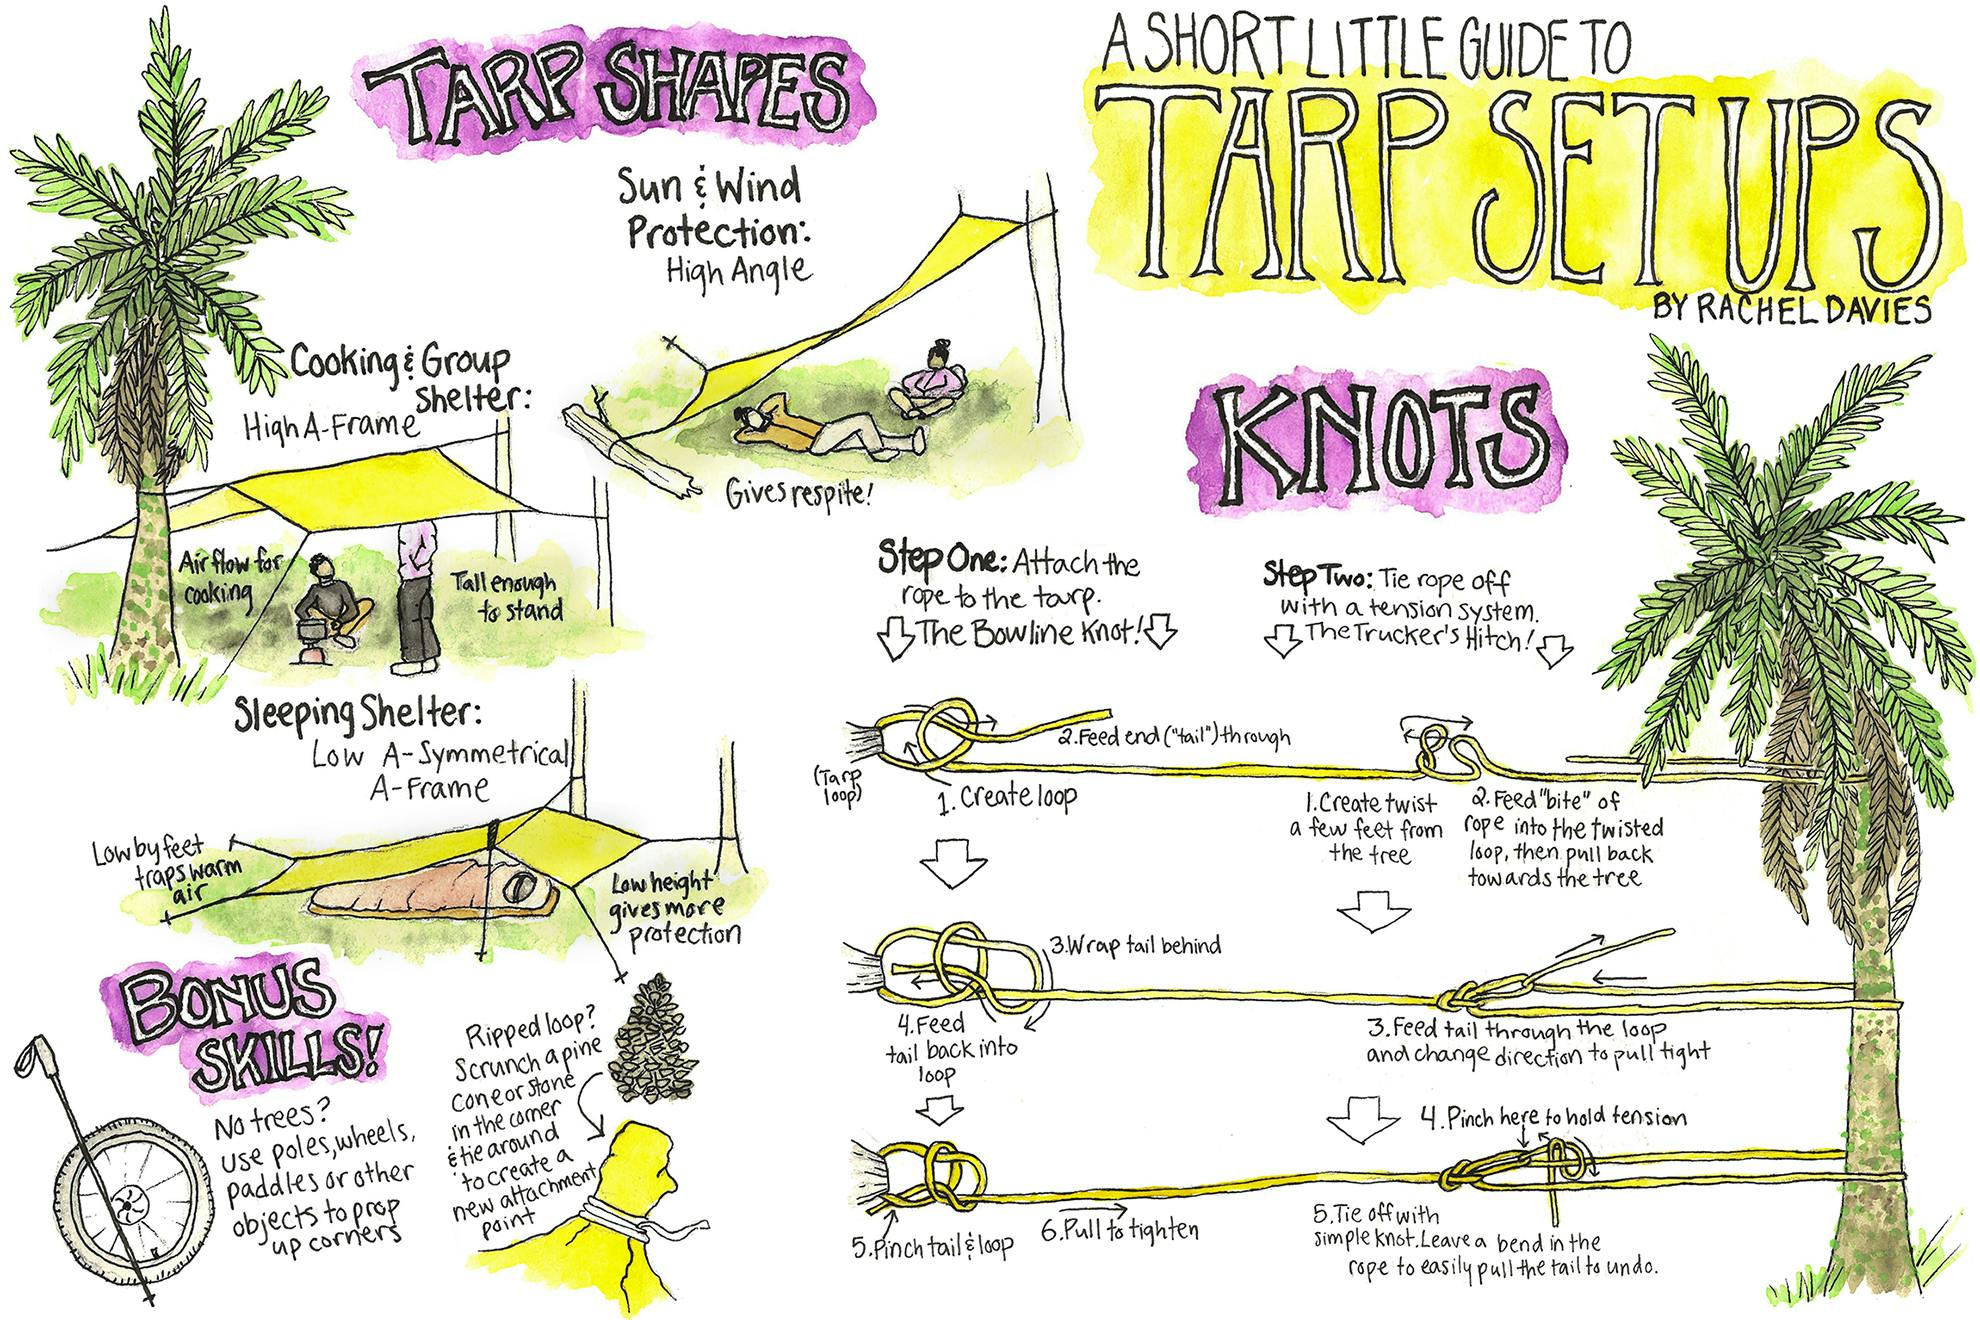 A SHORT LITTLE GUIDE TO
TARP SET UPS
BY RACHEL DAVIES
TARP SHAPES
Sun & Wind
Protection:
High Angle
Gives respite!
Cooking & Group
Shelter:
High A-Frame
Air flow for
cooking
Tall enough
to stand
Sleeping Shelter:
Low A-Symmetrical
A-Frame
Low by feet
traps warm
air
Low height
gives more
protection
BONUS
SKILLS!
No trees?
Use poles, wheels,
paddles or other
objects to prop
up corners
Ripped loop?
Scrunch a pine
cone or stone
in the corner
& tie around
to create a
new attachment
point
KNOTS
Step One: Attach the
rope to the tarp.
The Bowline Knot!
(Tarp
loop)
2. Feed end ("tail") through
1. Create loop
3. Wrap tail behind
4. Feed
tail back into
loop
5. Pinch tail & loop
6. Pull to tighten
Step Two: Tie rope off
with a tension system.
The Trucker's Hitch!
1. Create twist
a few feet from
the tree
2. Feed "bite" of
rope into the twisted
loop, then pull back
towards the tree
3. Feed tail through the loop
and change direction to pull tight
4. Pinch here to hold tension
5. Tie off with
simple knot. Leave a bend in the
rope to easily pull the tail to undo.